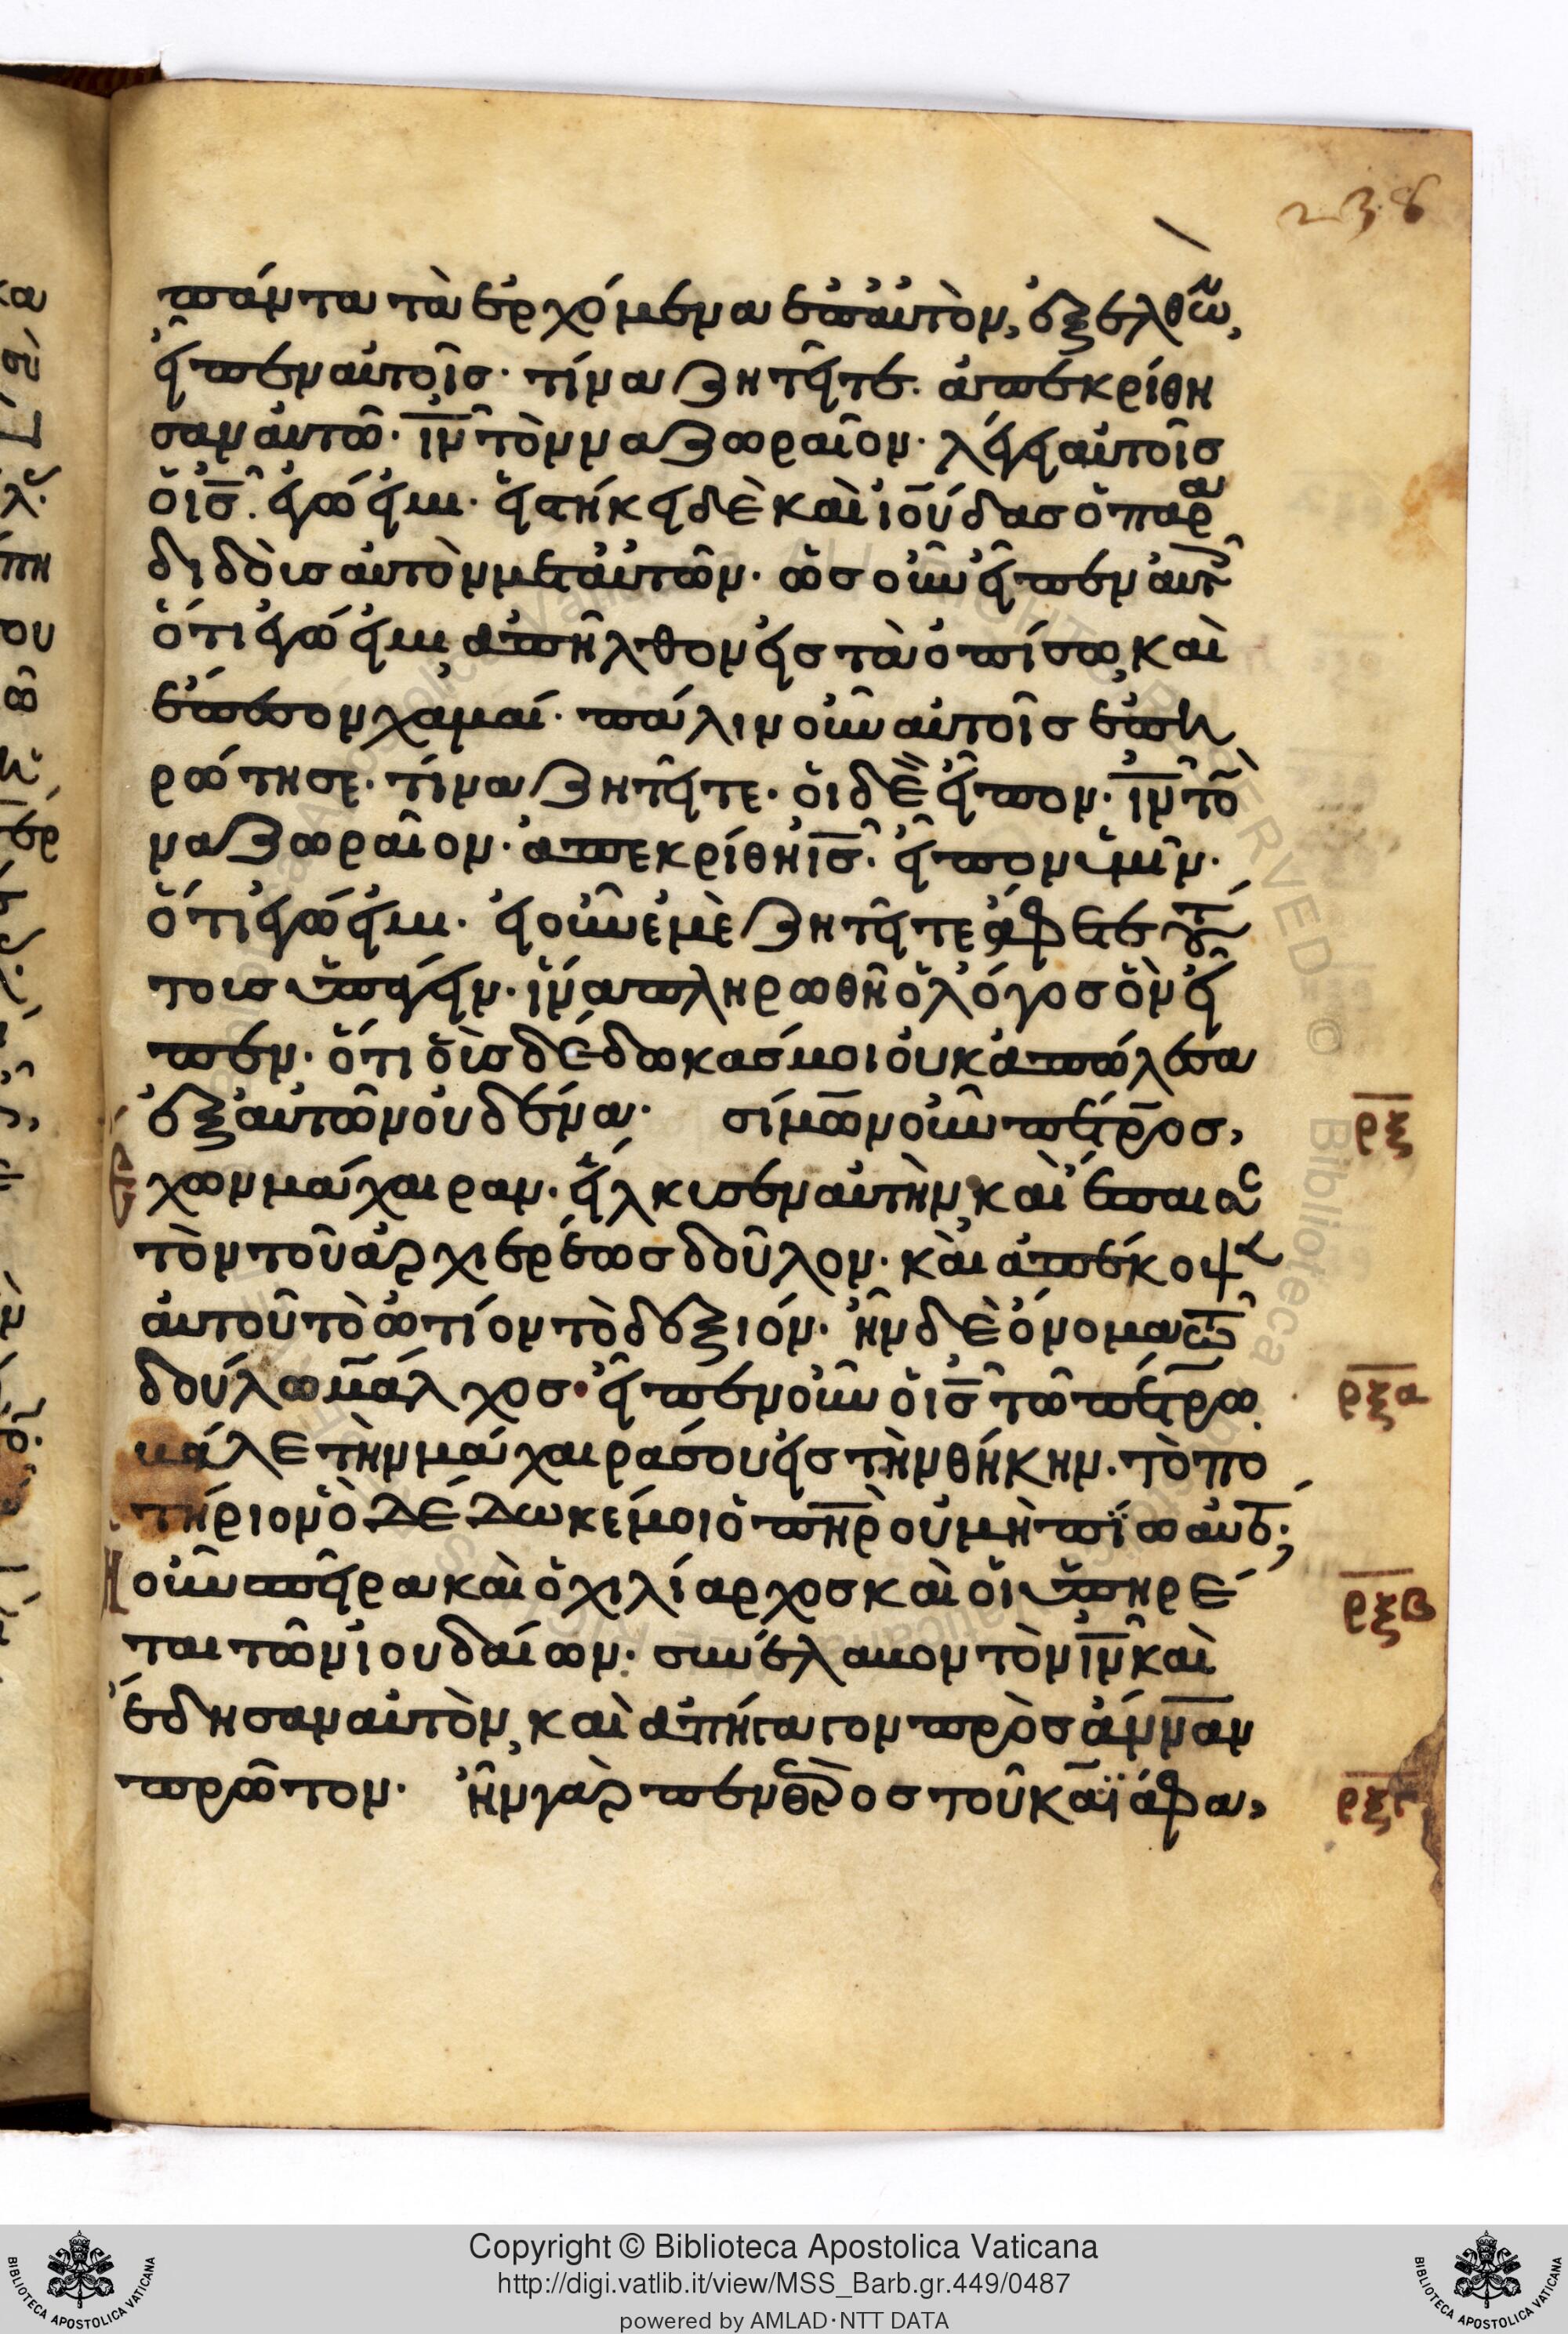 238
πάντα τὰ ἐρχόμενα ἐπ' αὐτὸν, ἐξελθὼ,
εἶπεν αὐτοῖσ· τίνα ζητεῖτε· ἀπεκρίθη
σαν αὐτῶ· ῑν̄ τὸν ναζωραῖον· λέγει αὐτοῖσ
ὁ ῑσ̄· ἐγώ εἰμι· εἱστήκει δὲ καὶ ἰούδασ ὁ παρα
διδοὺσ αὐτὸν μετ' αὐτῶν· ὡσ οὖν εἶπεν αὐτ
ὅτι ἐγώ εἰμι, ἀπῆλθον εἰσ τὰ ὀπίσω, καὶ
ἔπεσον χαμαί· πάλιν οὖν αὐτοῖσ ἐπη
ρώτησε· τίνα ζητεῖτε· οἱ δὲ εἶπον· ῑν̄ τὸ
ναζωραῖον· ἀπεκρίθη ῑσ̄· εἶπον ὑμῖν·
ὅτι ἐγώ εἰμι· εἰ οὖν ἐμὲ ζητεῖτε, ἄφετε τού
τουσ ὑπάγειν· ἵνα πληρωθῆ ὁ λόγοσ ὃν εἶ
πεν· ὅτι οὓσ δέδωκασ μοι οὐκ ἀπώλεσα
ἐξ αὐτῶν οὐδένα· σίμων οὖν πέτροσ,
ἔχων μάχαιραν· εἵλκυσεν αὐτὴν, καὶ ἔπαισε
τὸν τοῦ ἀρχιερέωσ δοῦλον· καὶ ἀπέκοψε
αὐτοῦ τὸ ὠτίον τὸ δεξιόν· ἦν δὲ ὄνομα τῶ
δούλω μάλχοσ· εἶπεν οὖν ὁ ῑσ̄ τῶ πέτρω
βάλε τὴν μάχαιρα σου εἰσ τὴν θήκην· τὸ πο
τήριον ὃ δέδωκέ μοι ὁ π̄η̄ρ̄ οὐ μὴ πίω αὐτό;
Ἡ οὖν σπεῖρα καὶ ὁ χιλίαρχοσ καὶ οἱ ὑπηρέ
ται τῶν ἰουδαίων· συνέλαβον τὸν ῑν̄ καὶ
ἔδησαν αὐτὸν, καὶ ἀπήγαγον πρὸσ ἄνναν
πρῶτον· ἦν γὰρ πενθερὸσ τοῦ καϊάφα,
ρξ
ρξα
ρξβ
ρξγ
Copyright © Biblioteca Apostolica Vaticana
http://digi.vatlib.it/view/MSS_Barb.gr.449/0487
powered by AMLAD·NTT DATA
BIBLIOTECA APOSTOLICA VATICANA
BIBLIOTECA APOSTOLICA VATICANA